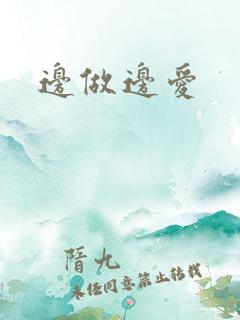 邊做邊愛
隋九
未经同意禁止转载